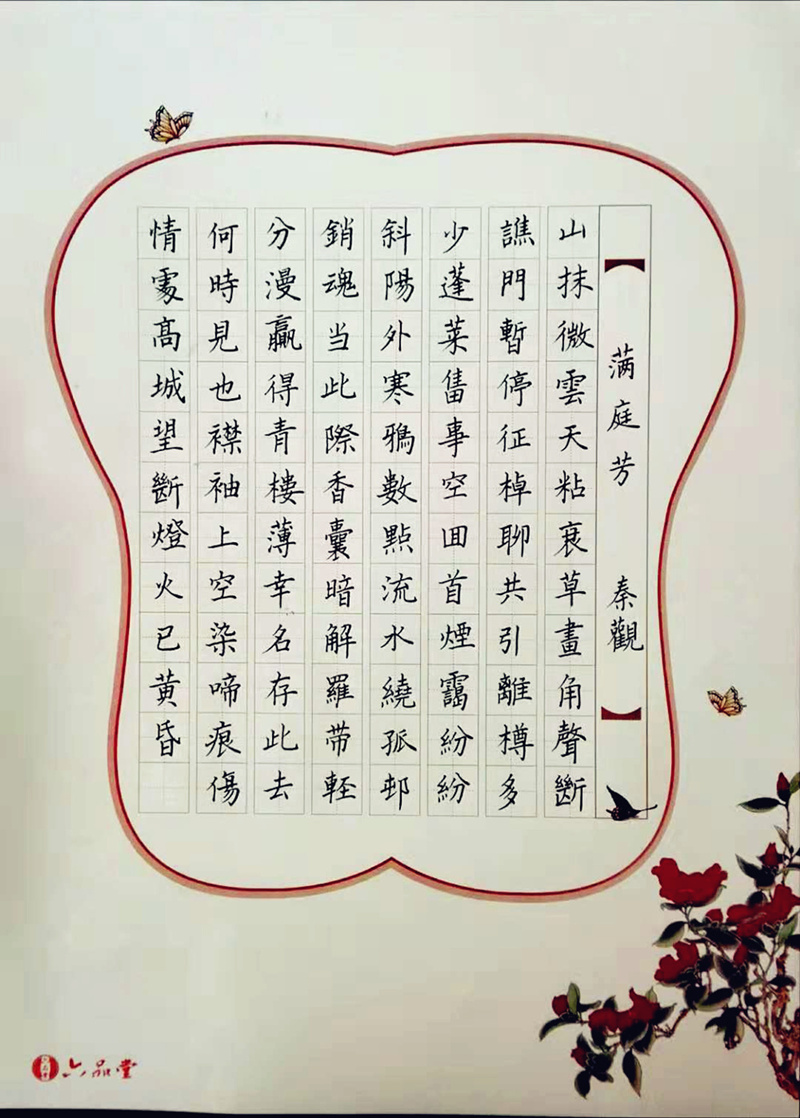 【满庭芳 秦觀】
山抹微雲天粘衰草畫角聲斷
譙門暫停征棹聊共引離樽多
少蓬菜舊事空回首煙靄紛紛
斜陽外寒鴉數點流水繞孤邨
銷魂当此際香囊暗解羅带軽
分漫贏得青樓薄幸名存此去
何時見也襟袖上空染啼痕傷
情處高城望斷燈火已黃昏
六品堂